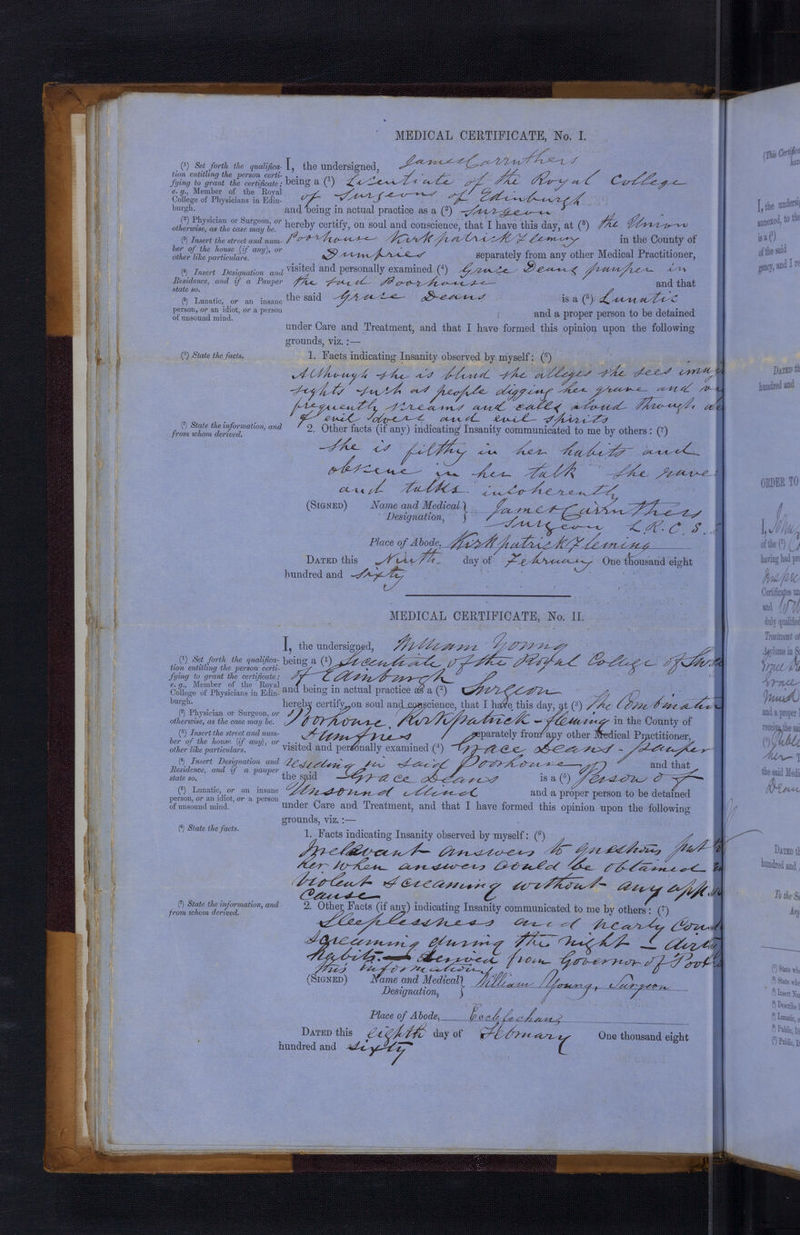 MEDICAL CERTIFICATE, No. I.
(¹) Set forth the qualifica-
tion entitling the person certi-
fying to grant the certificate;
e. g., Member of the Royal
College of Physicians in Edin-
burgh.
(²) Physician or Surgeon, or
otherwise, as the case may be.
(³) Insert the street and num-
ber of the house (if any), or
other like particulars.
(⁴) Insert Designation and
Residence, and if a Pauper
state so.
(⁵) Lunatic, or an insane
person, or an idiot, or a person
of unsound mind.
(⁶) State the facts.
(⁷) State the information, and
from whom derived.
I, the undersigned, James Carruthers
being a (¹) Licentiate of the Royal College
of Surgeons of Edinburgh
and being in actual practice as a (²) Surgeon
hereby certify, on soul and conscience, that I have this day, at (³) the Union
Poorhouse Kirkpatrick Fleming in the County of
Dumfries separately from any other Medical Practitioner,
visited and personally examined (⁴) Grace Deans pauper in
the said Poorhouse and that
the said Grace Deans is a (⁵) Lunatic
and a proper person to be detained
under Care and Treatment, and that I have formed this opinion upon the following
grounds, viz.:—
1. Facts indicating Insanity observed by myself: (⁶)
Although she is blind she alleges she sees
sights such as people digging her grave and
frequently screams and calls aloud through
of evil doers and evil spirits
2. Other facts (if any) indicating Insanity communicated to me by others: (⁷)
She is filthy in her habits and
obscene in her talk She raves
and talks incoherently
(SIGNED) Name and Medical Designation, James Carruthers
Surgeon L.R.C.S.
Place of Abode, Kirkpatrick Fleming
DATED this Ninth day of February One thousand eight
hundred and Sixty
MEDICAL CERTIFICATE, No. II.
(¹) Set forth the qualifica-
tion entitling the person certi-
fying to grant the certificate;
e. g., Member of the Royal
College of Physicians in Edin-
burgh.
(²) Physician or Surgeon, or
otherwise, as the case may be.
(³) Insert the street and num-
ber of the house (if any), or
other like particulars.
(⁴) Insert Designation and
Residence, and if a pauper
state so.
(⁵) Lunatic, or an insane
person, or an idiot, or a person
of unsound mind.
(⁶) State the facts.
(⁷) State the information, and
from whom derived.
I, the undersigned, William Young
being a (¹) Licentiate of the Royal College of
of Edinburgh
and being in actual practice as a (²) Surgeon
hereby certify, on soul and conscience, that I have this day, at (³) the Combination
Poorhouse Kirkpatrick-fleming in the County of
Dumfries separately from any other Medical Practitioner,
visited and personally examined (⁴) Grace Deans - pauper
residing in said Poorhouse and that
the said Grace Deans is a (⁵) Person of
Unsound Mind and a proper person to be detained
under Care and Treatment, and that I have formed this opinion upon the following
grounds, viz.:—
1. Facts indicating Insanity observed by myself: (⁶)
Irrelevant answers to questions put
her when answers could be obtained
Violent screaming without any
Cause
2. Other Facts (if any) indicating Insanity communicated to me by others: (⁷)
Sleeplessness and nearly
screaming during the night - dirty
habits. — derived from Governor of
this information
(SIGNED) Name and Medical Designation, William Young, Surgeon
Place of Abode, Ecclefechan
DATED this eighth day of February One thousand eight
hundred and sixty
ORDER TO